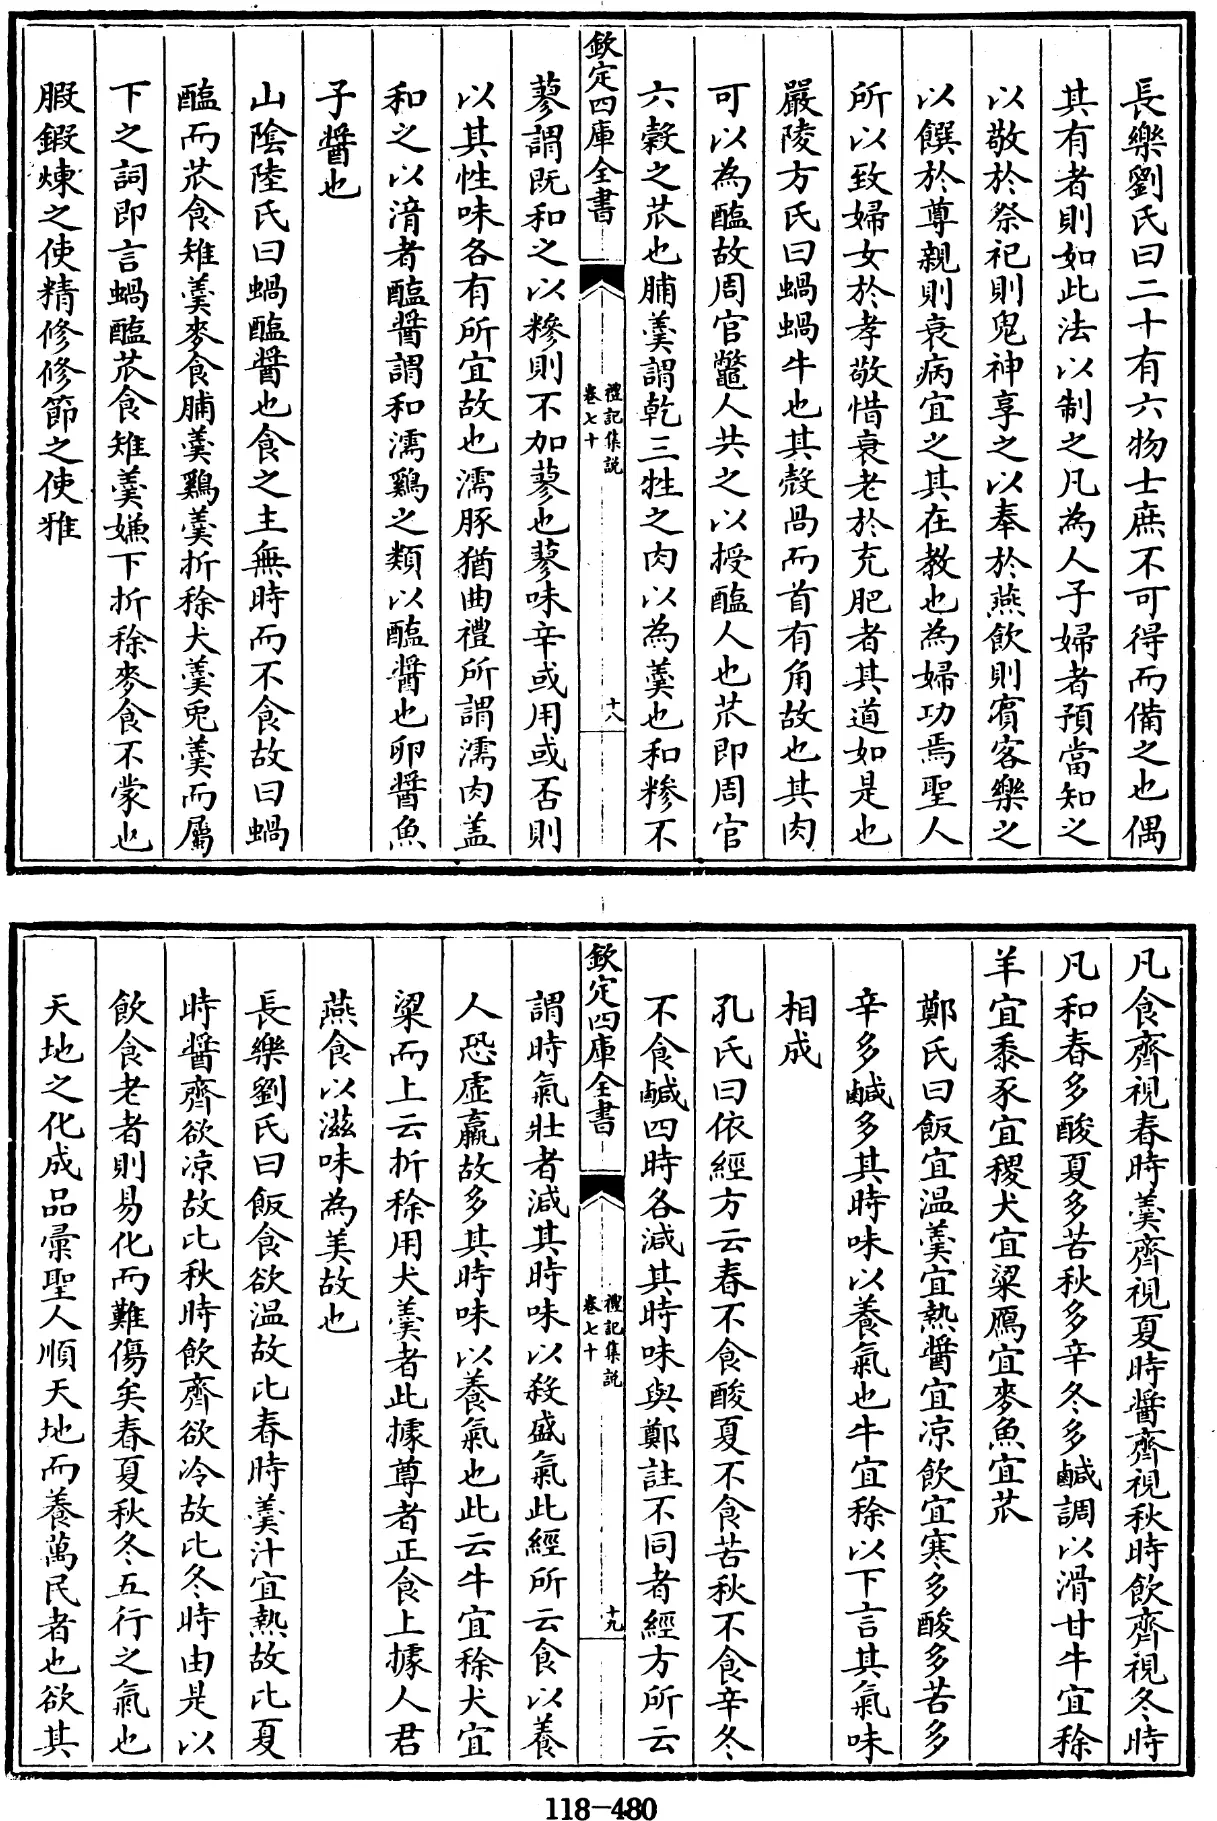 長樂劉氏曰二十有六物士庶不可得而備之也偶
其有者則如此法以制之凡為人子婦者預當知之
以敬於祭祀則鬼神享之以奉於燕飲則賓客樂之
以饌於尊親則衰病宜之其在教也為婦功焉聖人
所以致婦女於孝敬惜衰老於充肥者其道如是也
嚴陵方氏曰蝸蝸牛也其殼咼而首有角故也其肉
可以為醢故周官鼈人共之以授醢人也苽即周官
六穀之苽也脯羮謂乾三牲之肉以為羮也和糝不
欽定四庫全書
禮記集說
卷七十
十八
蓼謂既和之以糝則不加蓼也蓼味辛或用或否則
以其性味各有所宜故也濡豚猶曲禮所謂濡肉葢
和之以湇者醢醬謂和濡鷄之類以醢醬也卵醬魚
子醬也
山陰陸氏曰蝸醢醬也食之主無時而不食故曰蝸
醢而苽食雉羮麥食脯羮鷄羮折稌犬羮兎羮而屬
下之詞即言蝸醢苽食雉羮嫌下折稌麥食不蒙也
腶鍜煉之使精修修節之使雅
凡食齊視春時羮齊視夏時醬齊視秋時飲齊視冬時
凡和春多酸夏多苦秋多辛冬多鹹調以滑甘牛宜稌
羊宜黍豕宜稷犬宜粱鴈宜麥魚宜苽
鄭氏曰飯宜温羮宜熱醬宜凉飲宜寒多酸多苦多
辛多鹹多其時味以養氣也牛宜稌以下言其氣味
相成
孔氏曰依經方云春不食酸夏不食苦秋不食辛冬
不食鹹四時各減其時味與鄭註不同者經方所云
欽定四庫全書
禮記集說
卷七十
十九
謂時氣壯者減其時味以殺盛氣此經所云食以養
人恐虛羸故多其時味以養氣也此云牛宜稌犬宜
粱而上云折稌用犬羮者此據尊者正食上據人君
燕食以滋味為美故也
長樂劉氏曰飯食欲温故比春時羮汁宜熱故比夏
時醬齊欲凉故比秋時飲齊欲冷故比冬時由是以
飲食老者則易化而難傷矣春夏秋冬五行之氣也
天地之化成品彚聖人順天地而養萬民者也欲其
118-480